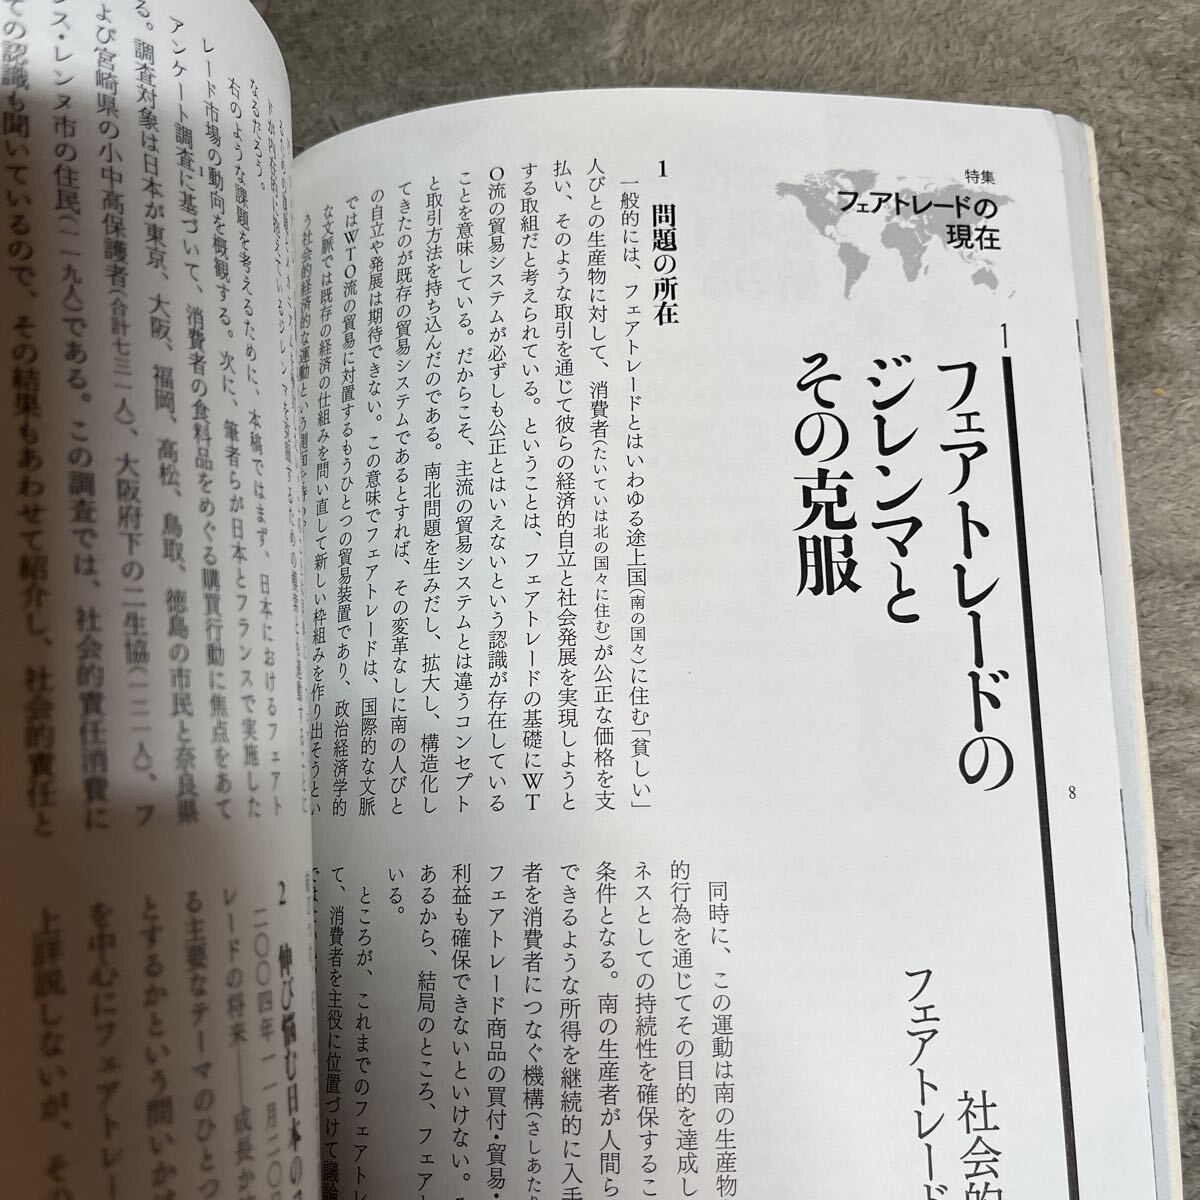 特集
フェアトレードの
現在
1
フェアトレードの
ジレンマと
その克服
8
社会的
フェアトレード
1 問題の所在
一般的には、フェアトレードとはいわゆる途上国(南の国々)に住む「貧しい」
人びとの生産物に対して、消費者(たいていは北の国々に住む)が公正な価格を支
払い、そのような取引を通じて彼らの経済的自立と社会発展を実現しようと
する取組だと考えられている。ということは、フェアトレードの基礎にWT
O流の貿易システムが必ずしも公正とはいえないという認識が存在している
ことを意味している。だからこそ、主流の貿易システムとは違うコンセプト
と取引方法を持ち込んだのである。南北問題を生みだし、拡大し、構造化し
てきたのが既存の貿易システムであるとすれば、その変革なしに南の人びと
の自立や発展は期待できない。この意味でフェアトレードは、国際的な文脈
ではWTO流の貿易に対置するもうひとつの貿易装置であり、政治経済学的
な文脈では既存の経済の仕組みを問い直して新しい枠組みを作り出そうとい
う社会的経済的な運動という側面を持つ
同時に、この運動は南の生産物
的行為を通じてその目的を達成し
ネスとしての持続性を確保するこ
条件となる。南の生産者が人間ら
できるような所得を継続的に入手
者を消費者につなぐ機構(さしあたり
フェアトレード商品の買付・貿易・
利益も確保できないといけない。
あるから、結局のところ、フェア
いる。
ところが、これまでのフェアトレ
て、消費者を主役に位置づけて議論
なるだろう。
右のような課題を考えるために、本稿ではまず、日本におけるフェアト
レード市場の動向を概観する。次に、筆者らが日本とフランスで実施した
アンケート調査に基づいて、消費者の食料品をめぐる購買行動に焦点をあて
る。調査対象は日本が東京、大阪、福岡、高松、鳥取、徳島の市民と奈良県
よび宮崎県の小中高保護者(合計七三一人)、大阪府下の二生協(一二一人)、フ
ンス・レンヌ市の住民(一一九人)である。この調査では、社会的責任消費に
ての認識も聞いているので、その結果もあわせて紹介し、社会的責任と
2 伸び悩む日本のフ
二〇〇四年一一月二〇
レードの将来――成長か
る主要なテーマのひとつ
とするかという問いか
を中心にフェアトレー
上詳説しないが、そ